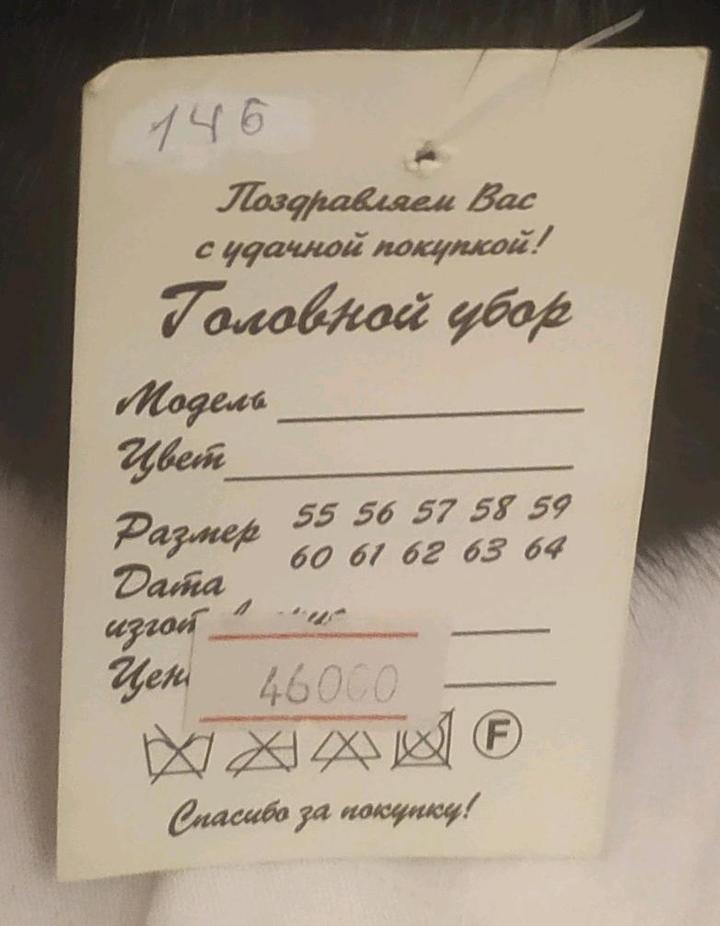 146
Поздравляем Вас
с удачной покупкой!
Головной убор
Модель
Цвет
Размер 55 56 57 58 59
60 61 62 63 64
Дата
Цен
46000
F
Спасибо за покупку!